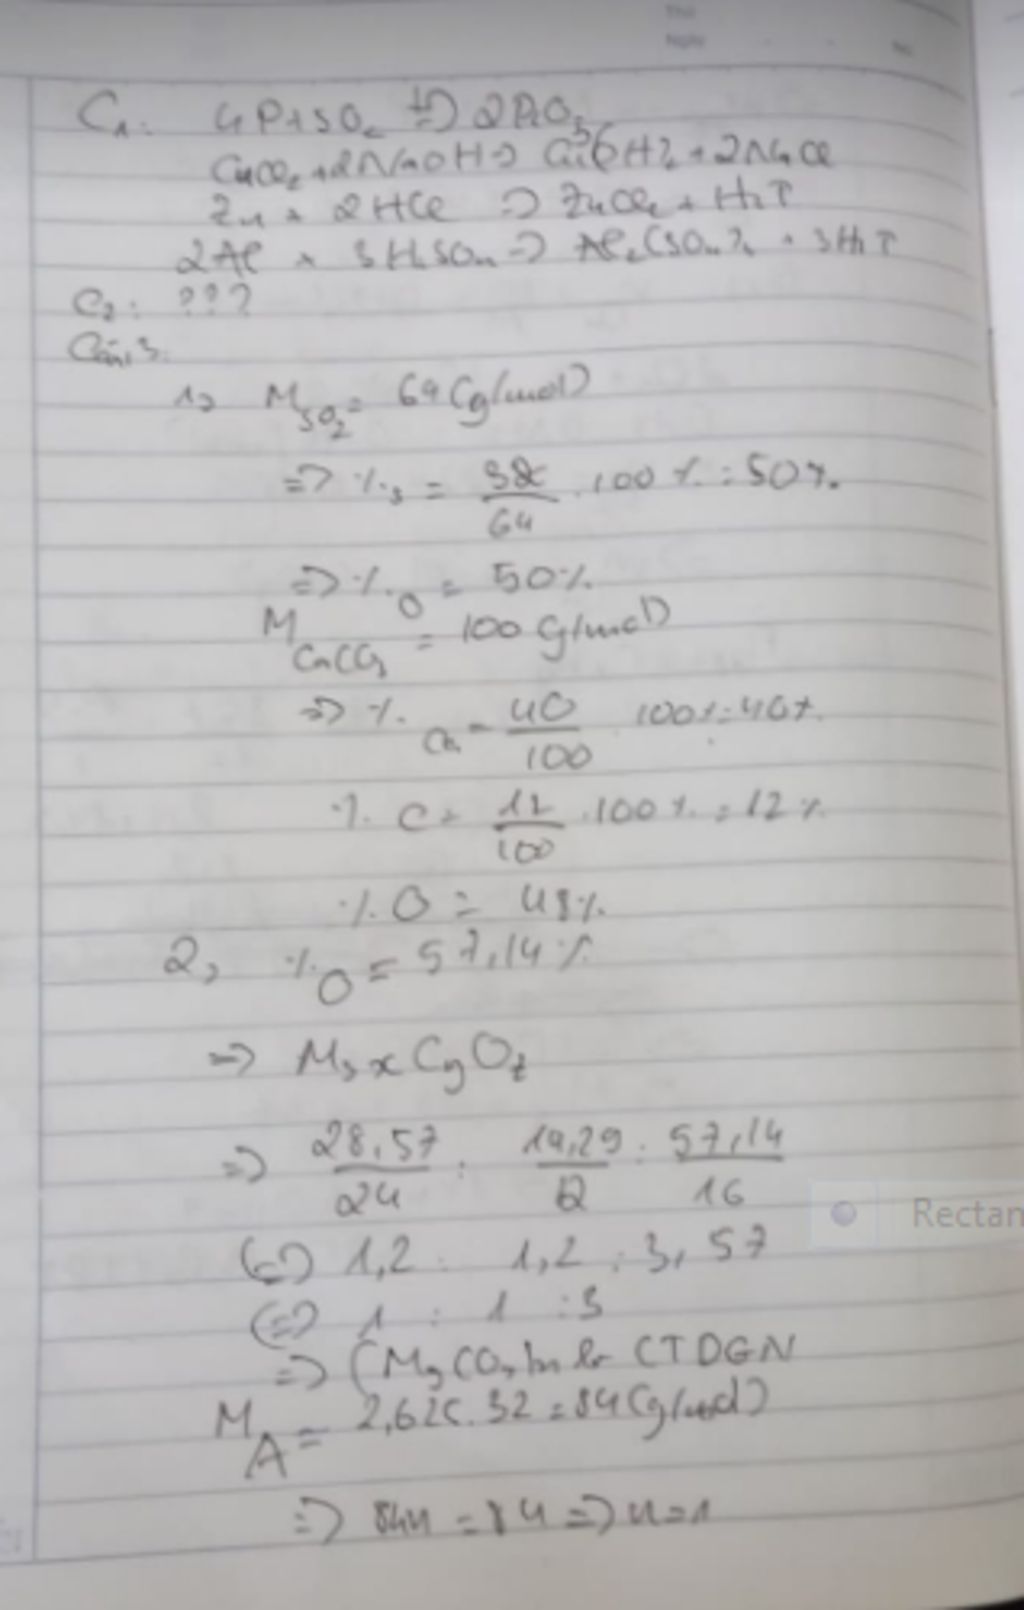 Thứ
Ngày
No.
C₁: 4P+5O₂ t°=> 2P₂O₅
CuCl₂ + 2NaOH => Cu(OH)₂ + 2NaCl
Zn + 2HCl => ZnCl₂ + H₂↑
2Al + 3H₂SO₄ => Al₂(SO₄)₃ + 3H₂↑
C₂: ???
Câu 3:
1, M SO₂ = 64 (g/mol)
=> %S = 32/64 . 100% = 50%.
=> %O = 50%.
M CaCO₃ = 100 (g/mol)
=> % Ca = 40/100 100% = 40%.
% C = 12/100 . 100% = 12%
%O = 48%.
2, %O = 57,14%
=> MgxCyOz
=> 28,57/24 : 14,29/12 : 57,14/16
(=) 1,2 : 1,2 : 3,57
(=) 1 : 1 : 3
=> (MgCO₃)n là CTDGN
M A = 2,625.32 = 84 (g/mol)
=> 84n = 84 => n=1
Rectan